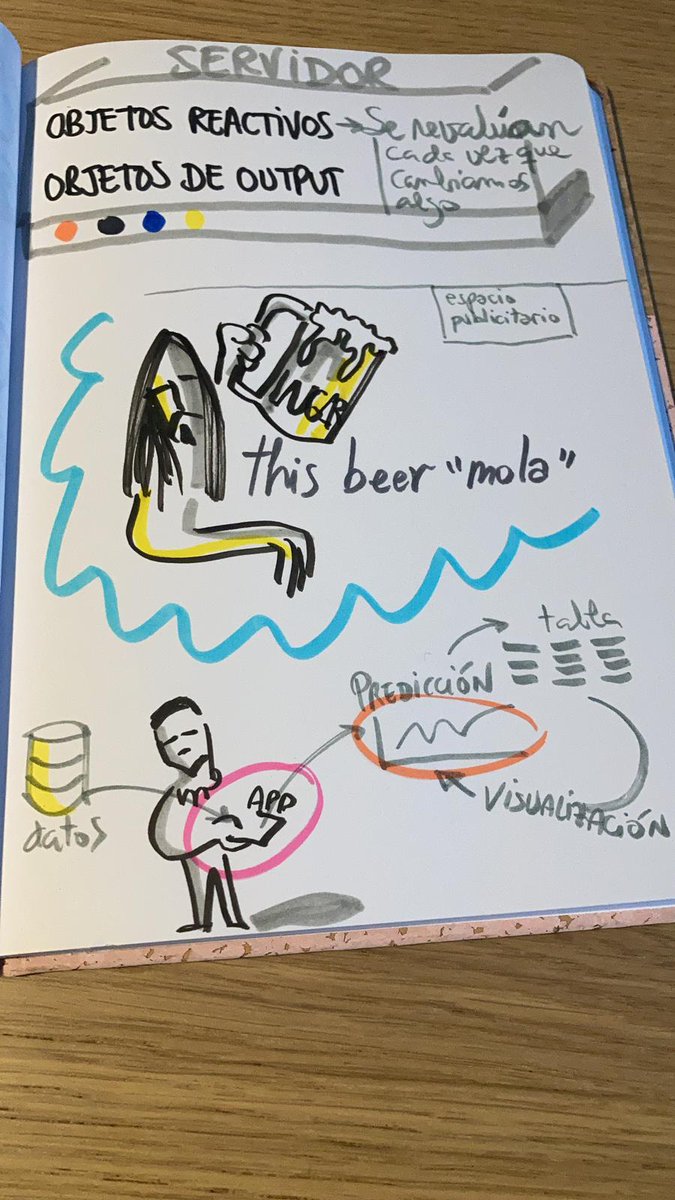 SERVIDOR
OBJETOS REACTIVOS → Se revalúan
cada vez que
cambiamos
algo
OBJETOS DE OUTPUT
espacio
publicitario
this beer "mola"
tabla
PREDICCIÓN
APP
VISUALIZACIÓN
datos